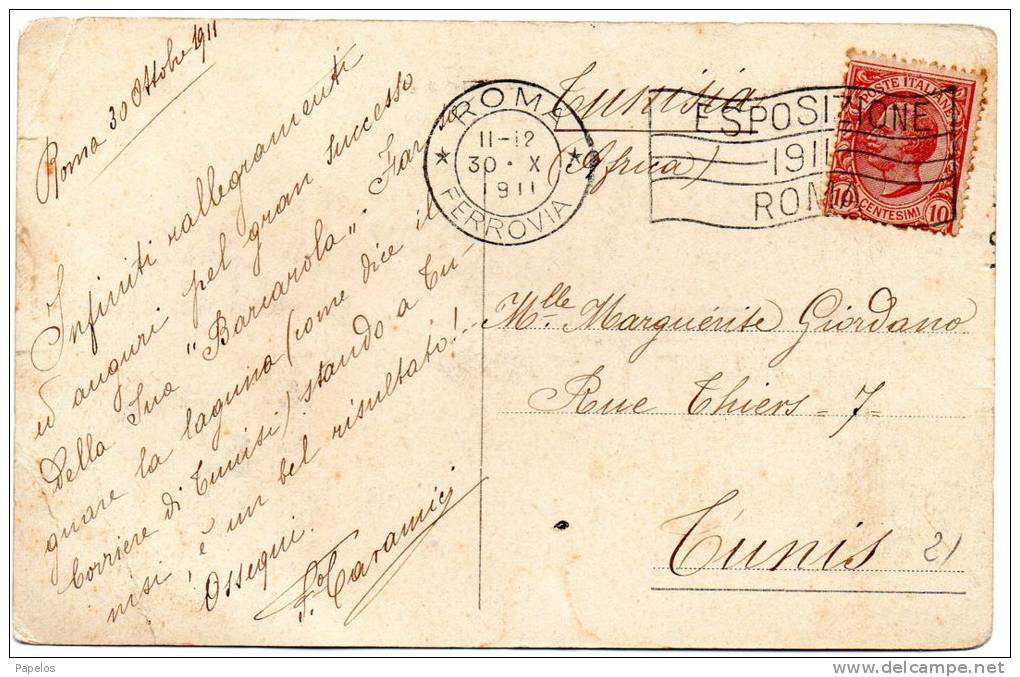 Roma 30 Ottobre 1911
Infiniti rallegramenti
ed auguri pel gran successo
della Sua "Barcarola". Far sì
guare la laguna (come dice il
Corriere di Tunisi) stando a Tu-
nisi, è un bel risultato!
Ossequi.
ROMA
11-12
30 · X
1911
FERROVIA
ESPOSIZIONE
1911
ROMA
POSTE ITALIANE
10 CENTESIMI 10
Tunisia
(Africa)
Mlle Marguérite Giordano
Rue Thiers - 7 -
Tunis
21
Papelos
www.delcampe.net